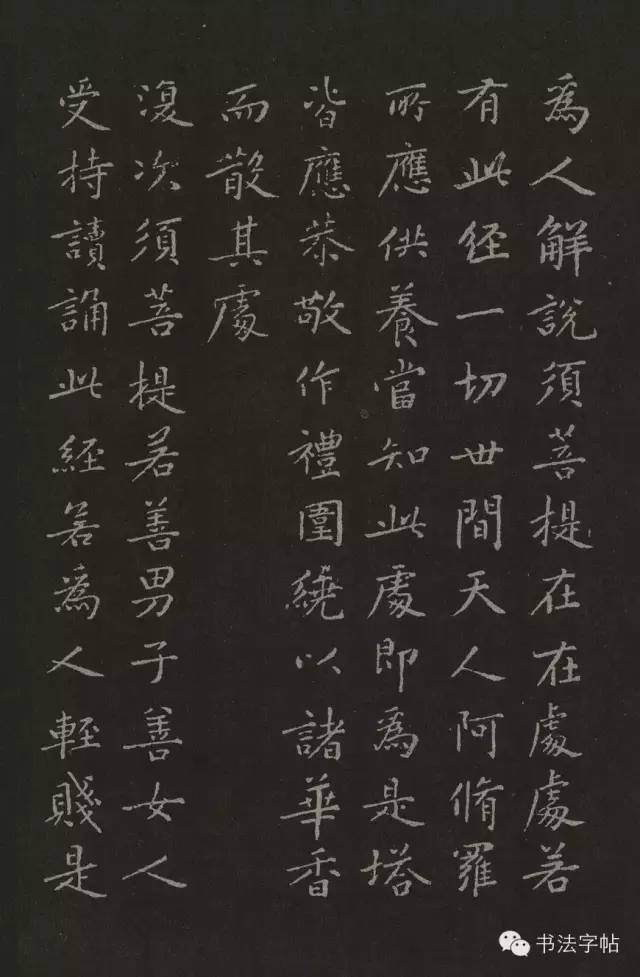 為人解說須菩提在在處處若
有此経一切世間天人阿脩羅
所應供養當知此處即為是塔
皆應恭敬作禮圍繞以諸華香
而散其處
復次須菩提若善男子善女人
受持讀誦此經若為人輕賤是
书法字帖